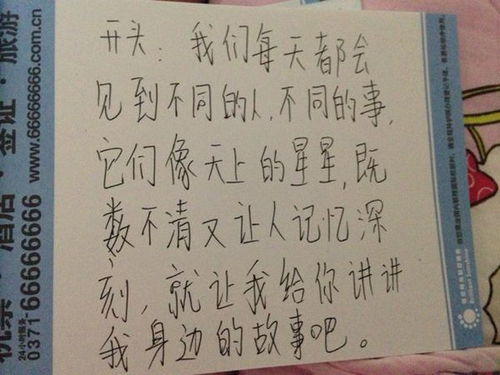 开头：我们每天都会
见到不同的人,不同的事,
它们像天上的星星,既
数不清又让人记忆深
刻，就让我给你讲讲
我身边的故事吧。
机票·酒店·签证·旅游
24小时服务
0371-66666666 www.66666666.com.cn
Brilliant Sunshine